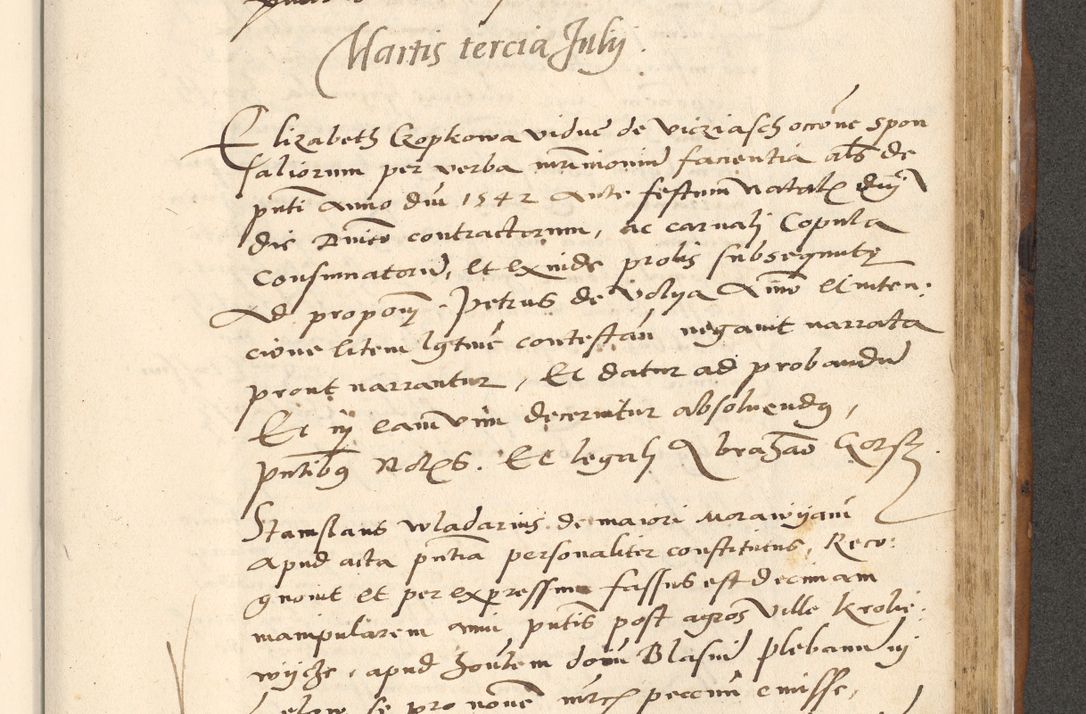 Martis tercia Julij.
Elizabeth Czopkowa vidue de viziasch occone spon
saliorum per verba mrimonium facientia als de
pnti Anno dni 1542 Ante festum Natal dnj
die contractorum, ac carnalj Copula
Consumatorum, Et Exinde prolis subsequute
Ad propom Petrus de Volya Animo et inten:
cione litem lgtme contestan negavit narrata
prout narrantur, Et datur ad probandum
Et ij eam vim decernitur absolvendus,
pntibus Notris. Et legalj Abraham Gorsz
Stanislaus wladarius de maiori Morawyani
Apud acta pntia personaliter constitutus, Reco:
gnovit et per expressum fassus est decimam
manipularem anni pntis post agros ville krolie
wycze, apud honlem dom Blasium plebanum ij
se pro novem mrc peccuni emisse,